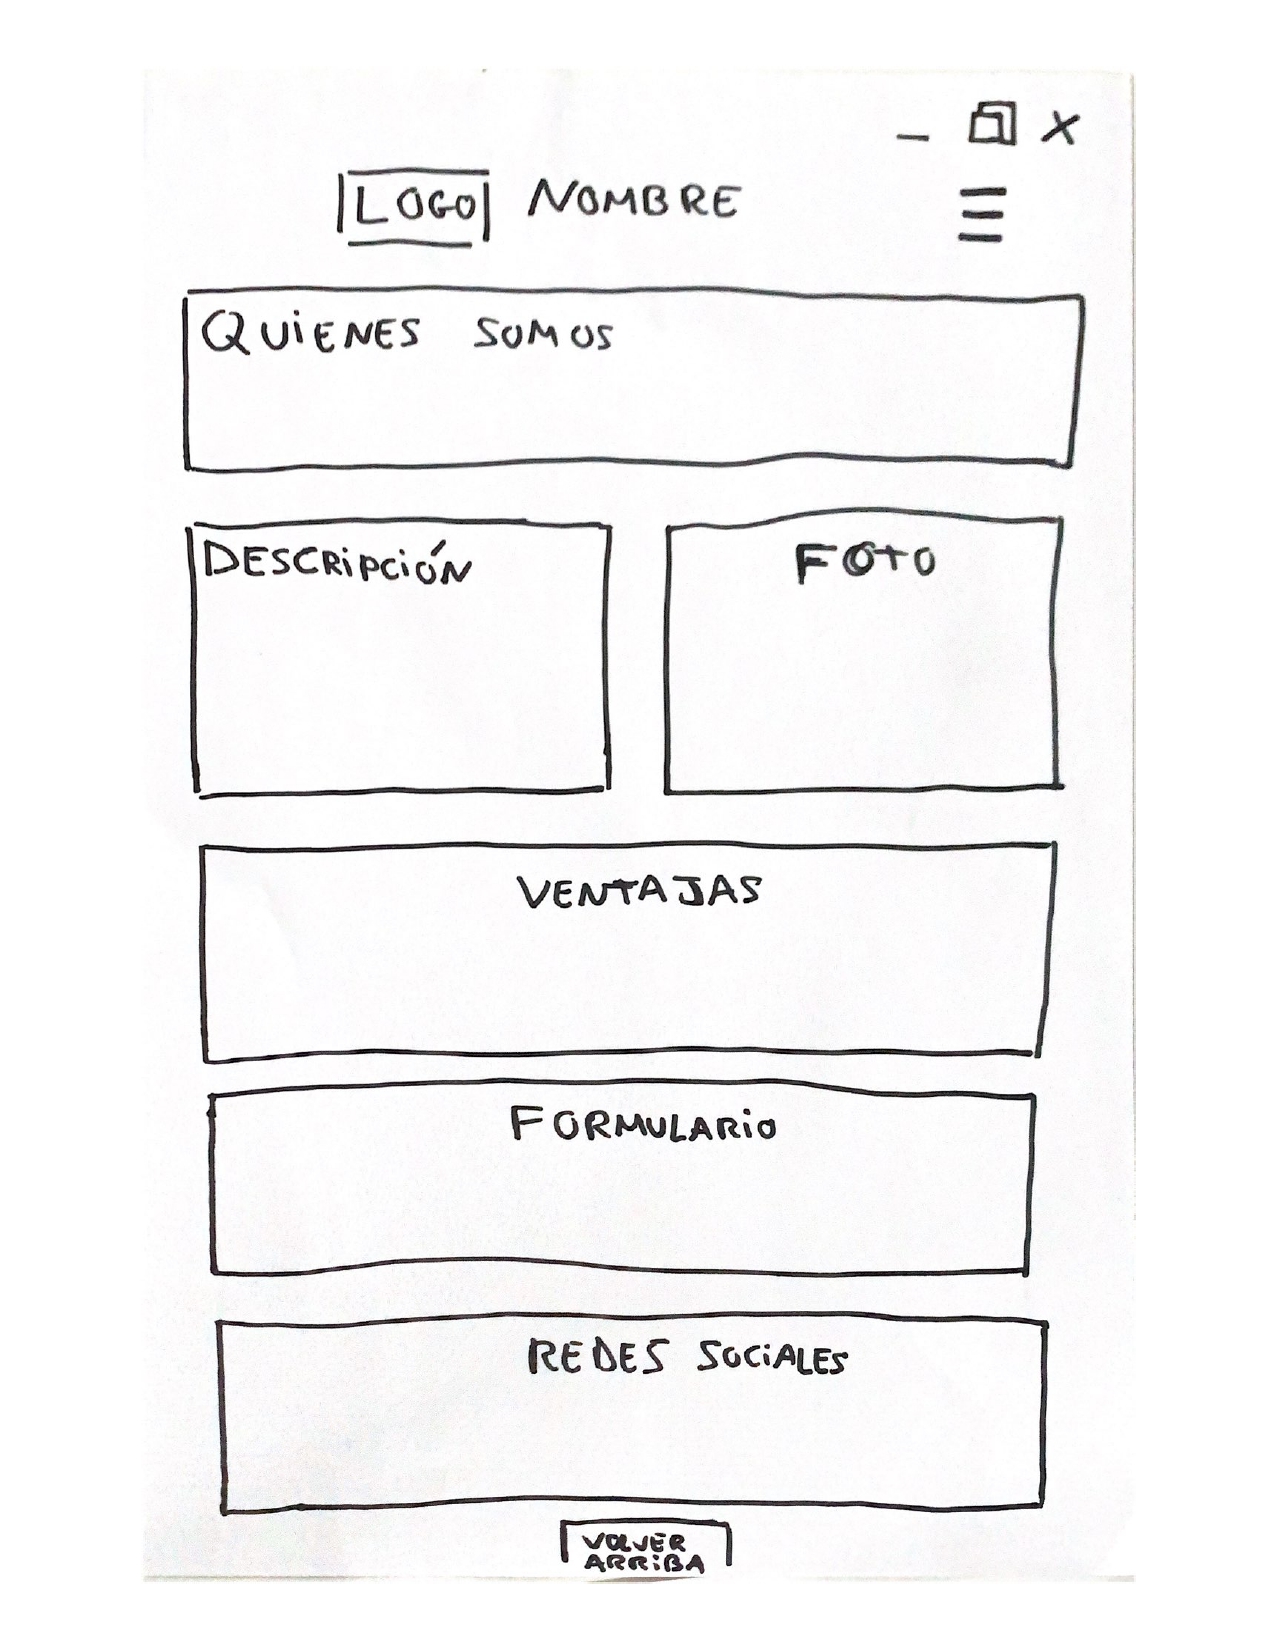 LOGO NOMBRE
QUIENES SOMOS
DESCRIPCIÓN
FOTO
VENTAJAS
FORMULARIO
REDES SOCIALES
VOLVER
ARRIBA